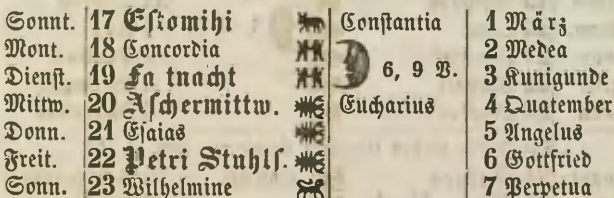 Sonnt. 17 Eſtomihi Conſtantia 1 März
Mont. 18 Concordia 2 Medea
Dienſt. 19 Fa tnacht 6, 9 V. 3 Kunigunde
Mittw. 20 Aſchermittw. Eucharius 4 Quatember
Donn. 21 Eſaias 5 Angelus
Freit. 22 Petri Stuhlf. 6 Gottfried
Sonn. 23 Wilhelmine 7 Perpetua